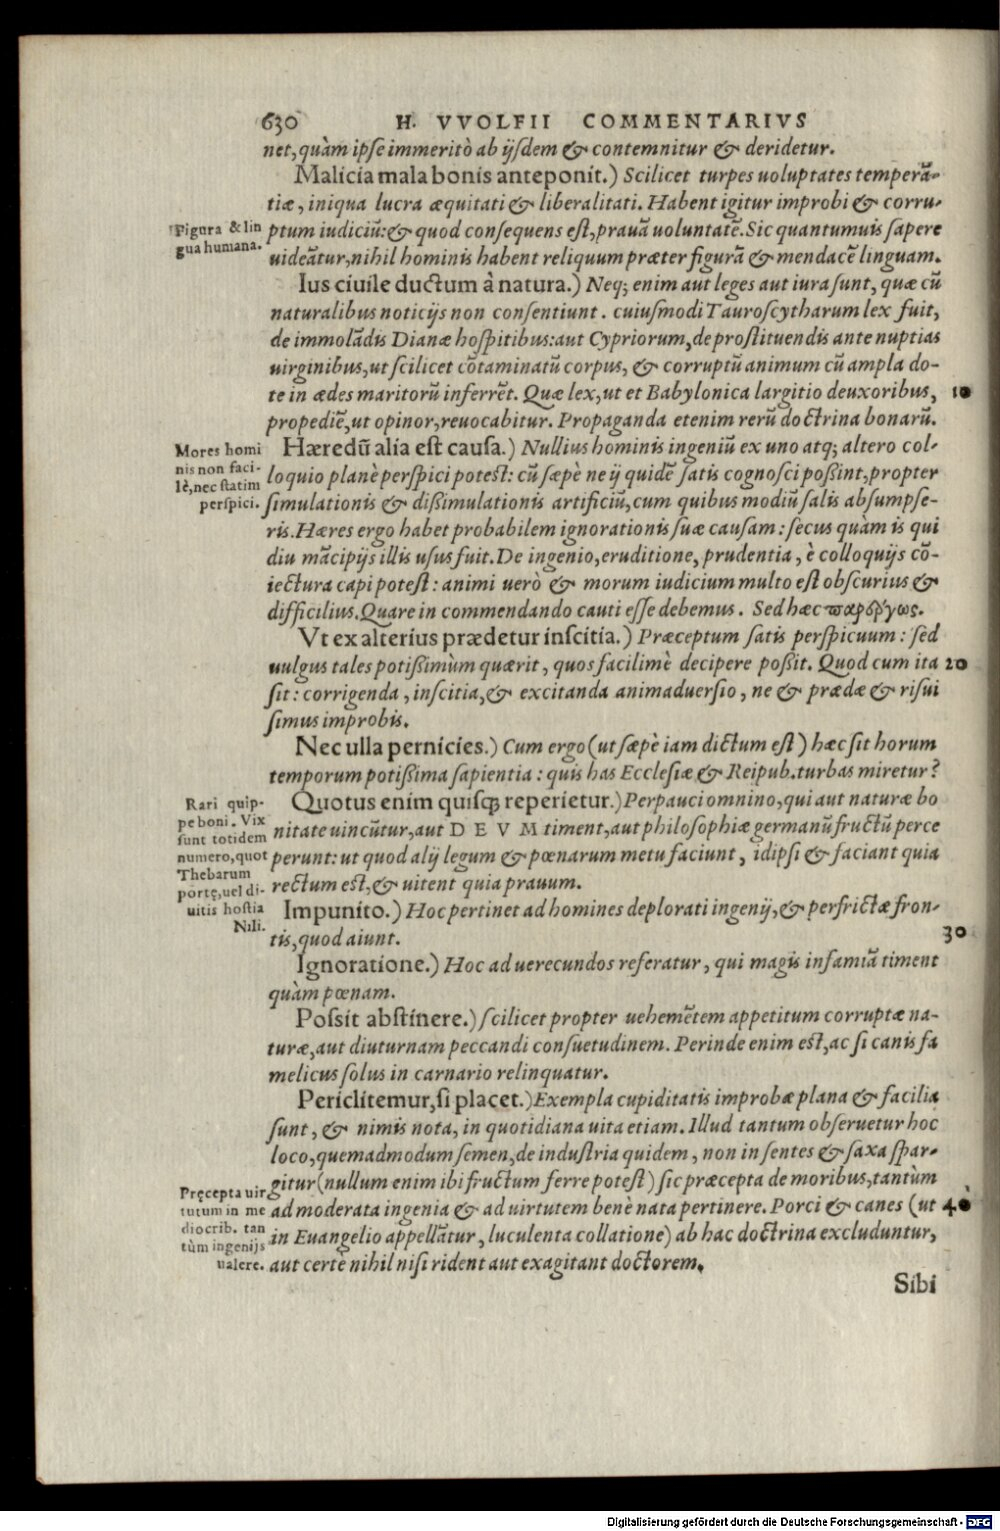 630 H. VVOLFII COMMENTARIVS
net, quàm ipse immeritò ab ijsdem & contemnitur & deridetur.
Malicia mala bonis anteponit.) Scilicet turpes uoluptates temperã-
tiæ, iniqua lucra æquitati & liberalitati. Habent igitur improbi & corru-
Figura & lin
gua humana.
ptum iudiciũ: & quod consequens est, prauã uoluntatẽ. Sic quantumuis sapere
uideãtur, nihil hominis habent reliquum præter figurã & mendacẽ linguam.
Ius ciuile ductum à natura.) Neq; enim aut leges aut iura sunt, quæ cũ
naturalibus noticijs non consentiunt. cuiusmodi Tauroscytharum lex fuit,
de immolãdis Dianæ hospitibus: aut Cypriorum, de prostituendis ante nuptias
uirginibus, ut scilicet cõtaminatũ corpus, & corruptũ animum cũ ampla do-
te in ædes maritorũ inferrẽt. Quæ lex, ut et Babylonica largitio de uxoribus, 10
propediẽ, ut opinor, reuocabitur. Propaganda etenim rerũ doctrina bonarũ.
Mores homi
nis non faci-
lè, nec statim
perspici.
Hæredũ alia est causa.) Nullius hominis ingeniũ ex uno atq; altero col-
loquio planè perspici potest: cũ sæpè ne ij quidẽ satis cognosci poßint, propter
simulationis & dißimulationis artificiũ, cum quibus modiũ salis absumpse-
ris. Hæres ergo habet probabilem ignorationis suæ causam: secus quàm is qui
diu mãcipijs illis usus fuit. De ingenio, eruditione, prudentia, è colloquijs cõ-
iectura capi potest: animi uerò & morum iudicium multo est obscurius &
difficilius. Quare in commendando cauti esse debemus. Sed hæc παρέργως.
Vt ex alterius prædetur inscitia.) Præceptum satis perspicuum: sed
uulgus tales potißimùm quærit, quos facilimè decipere poßit. Quod cum ita 20
sit: corrigenda, inscitia, & excitanda animaduersio, ne & prædæ & risui
simus improbis.
Nec ulla pernicies.) Cum ergo (ut sæpè iam dictum est) hæc sit horum
temporum potißima sapientia: quis has Ecclesiæ & Reipub. turbas miretur?
Rari quip-
pe boni. Vix
sunt totidem
numero, quot
Thebarum
portę, uel di-
uitis hostia
Nili.
Quotus enim quisq; reperietur.) Perpauci omnino, qui aut naturæ bo
nitate uincũtur, aut DEVM timent, aut philosophiæ germanũ fructũ perce
perunt: ut quod alij legum & pœnarum metu faciunt, id ipsi & faciant quia
rectum est, & uitent quia prauum.
Impunito.) Hoc pertinet ad homines deplorati ingenij, & perfrictæ fron-
tis, quod aiunt. 30
Ignoratione.) Hoc ad uerecundos referatur, qui magis infamiã timent
quàm pœnam.
Possit abstinere.) scilicet propter uehemẽtem appetitum corruptæ na-
turæ, aut diuturnam peccandi consuetudinem. Perinde enim est, ac si canis fa
melicus solus in carnario relinquatur.
Periclitemur, si placet.) Exempla cupiditatis improbæ plana & facilia
sunt, & nimis nota, in quotidiana uita etiam. Illud tantum obseruetur hoc
loco, quemadmodum semen, de industria quidem, non in sentes & saxa spar-
Pręcepta uir
tutum in me
diocrib. tan
tùm ingenijs
ualere.
gitur (nullum enim ibi fructum ferre potest) sic præcepta de moribus, tantùm
ad moderata ingenia & ad uirtutem benè nata pertinere. Porci & canes (ut 40
in Euangelio appellãtur, luculenta collatione) ab hac doctrina excluduntur,
aut certè nihil nisi rident aut exagitant doctorem.
Sibi
Digitalisierung gefördert durch die Deutsche Forschungsgemeinschaft - DFG